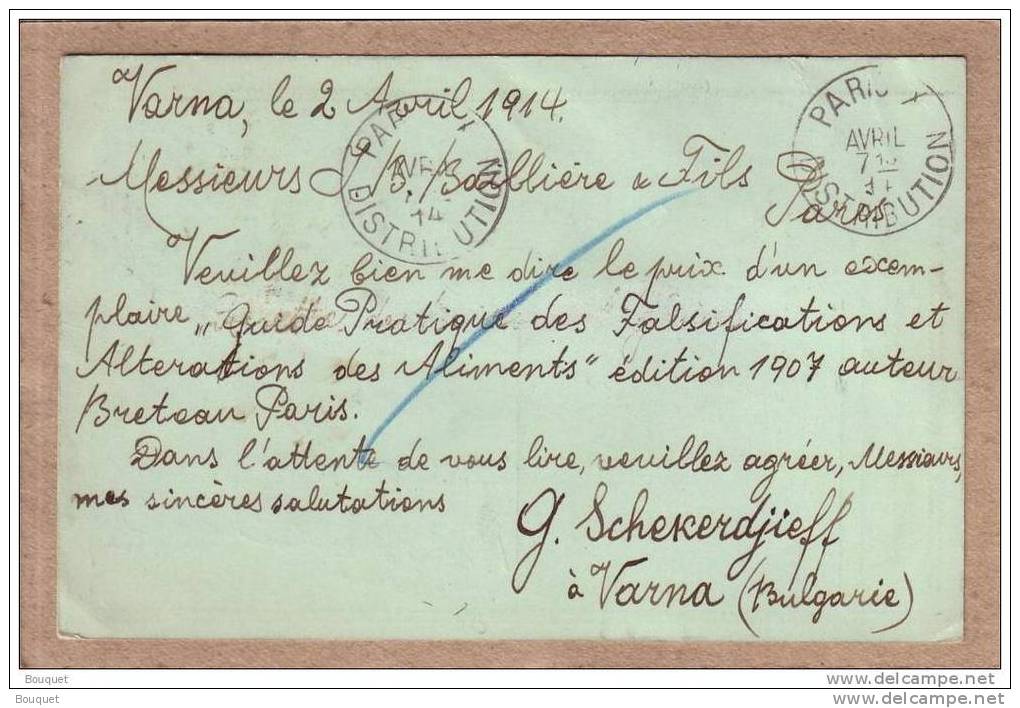 Varna, le 2 Avril 1914.
Messieurs J. B. Baillière & Fils
Paris
Veuillez bien me dire le prix d'un exem-
plaire „Guide Pratique des Falsifications et
Alterations des Aliments" édition 1907 auteur
Breteau Paris.
Dans l'attente de vous lire, veuillez agréer, Messieurs,
mes sincères salutations
G. Schekerdjieff
à Varna (Bulgarie)
PARIS
AVRIL
14
DISTRIBUTION
PARIS
AVRIL
DISTRIBUTION
Bouquet
Bouquet
www.delcampe.net
www.delcampe.net